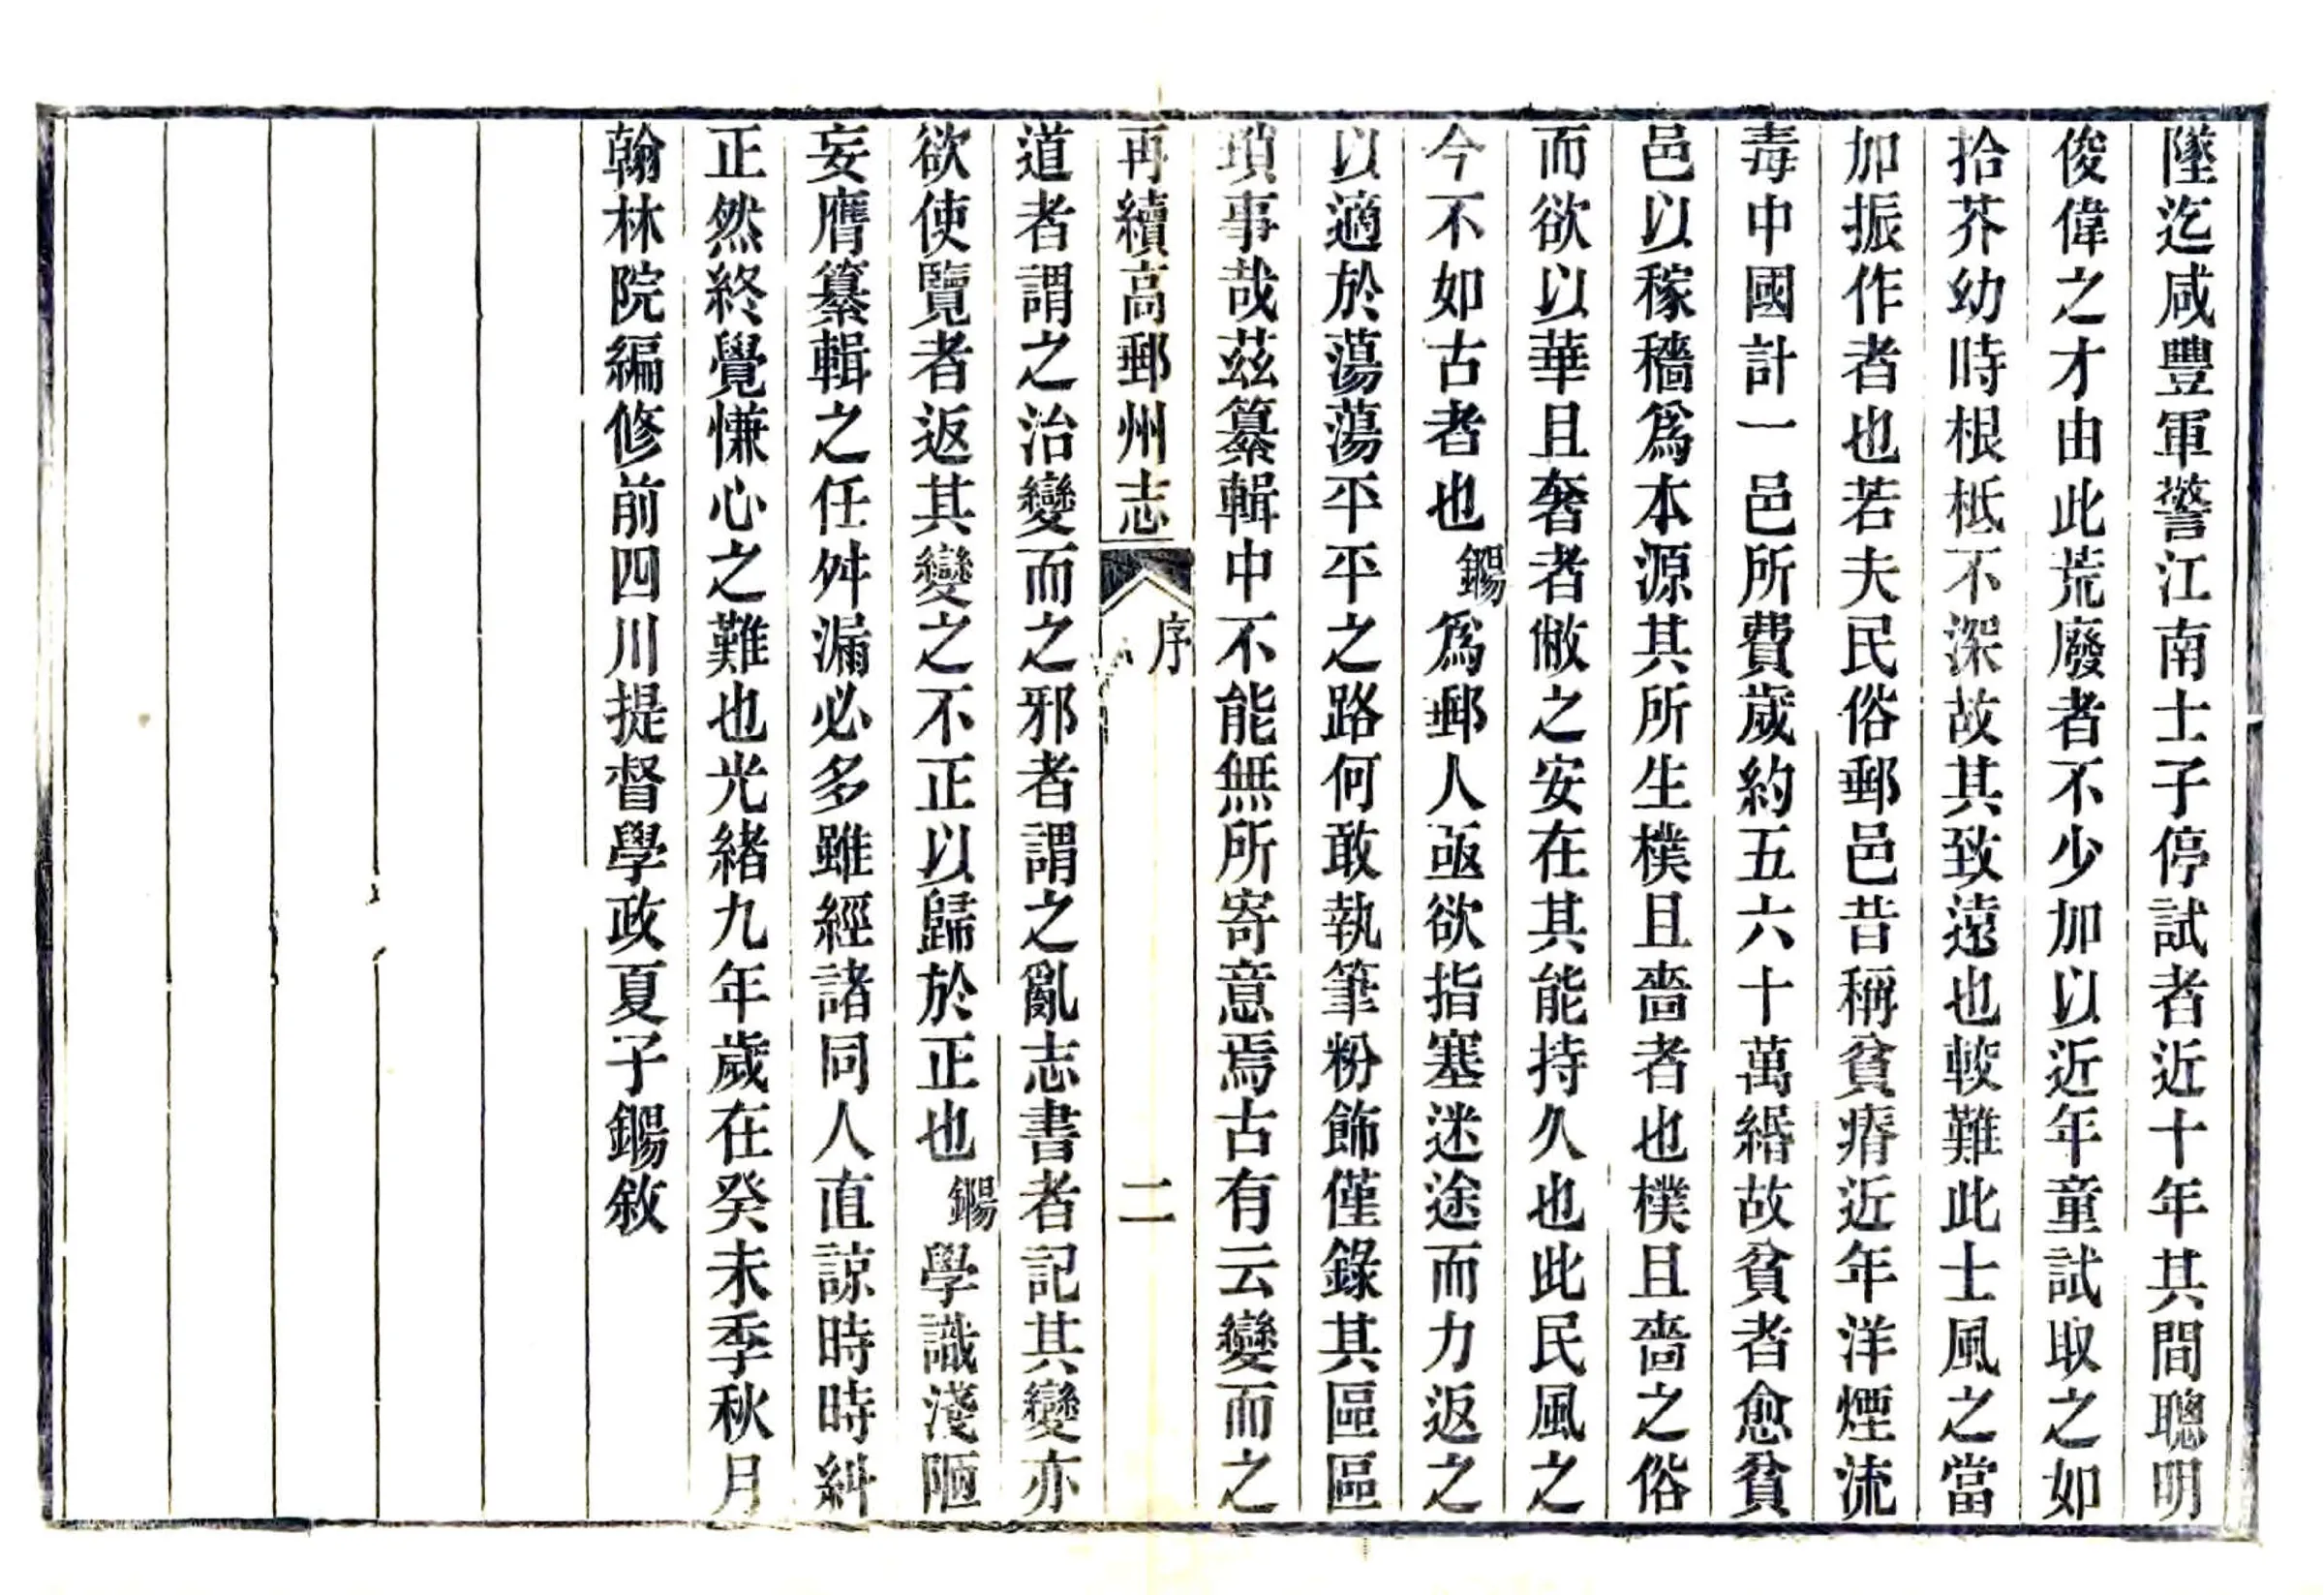 墜迄咸豐軍警江南士子停試者近十年其間聰明
俊偉之才由此荒廢者不少加以近年童試取之如
拾芥幼時根柢不深故其致遠也較難此士風之當
加振作者也若夫民俗郵邑昔稱貧瘠近年洋煙流
毒中國計一邑所費歲約五六十萬緡故貧者愈貧
邑以稼穡爲本源其所生樸且嗇者也樸且嗇之俗
而欲以華且奢者敝之安在其能持久也此民風之
今不如古者也鍚爲郵人亟欲指塞迷途而力返之
以適於蕩蕩平平之路何敢執筆粉飾僅錄其區區
瑣事哉茲纂輯中不能無所寄意焉古有云變而之
再續高郵州志 序 二
道者謂之治變而之邪者謂之亂志書者記其變亦
欲使覽者返其變之不正以歸於正也鍚學識淺陋
妄膺纂輯之任舛漏必多雖經諸同人直諒時時糾
正然終覺慊心之難也光緒九年歲在癸未季秋月
翰林院編修前四川提督學政夏子鍚敘